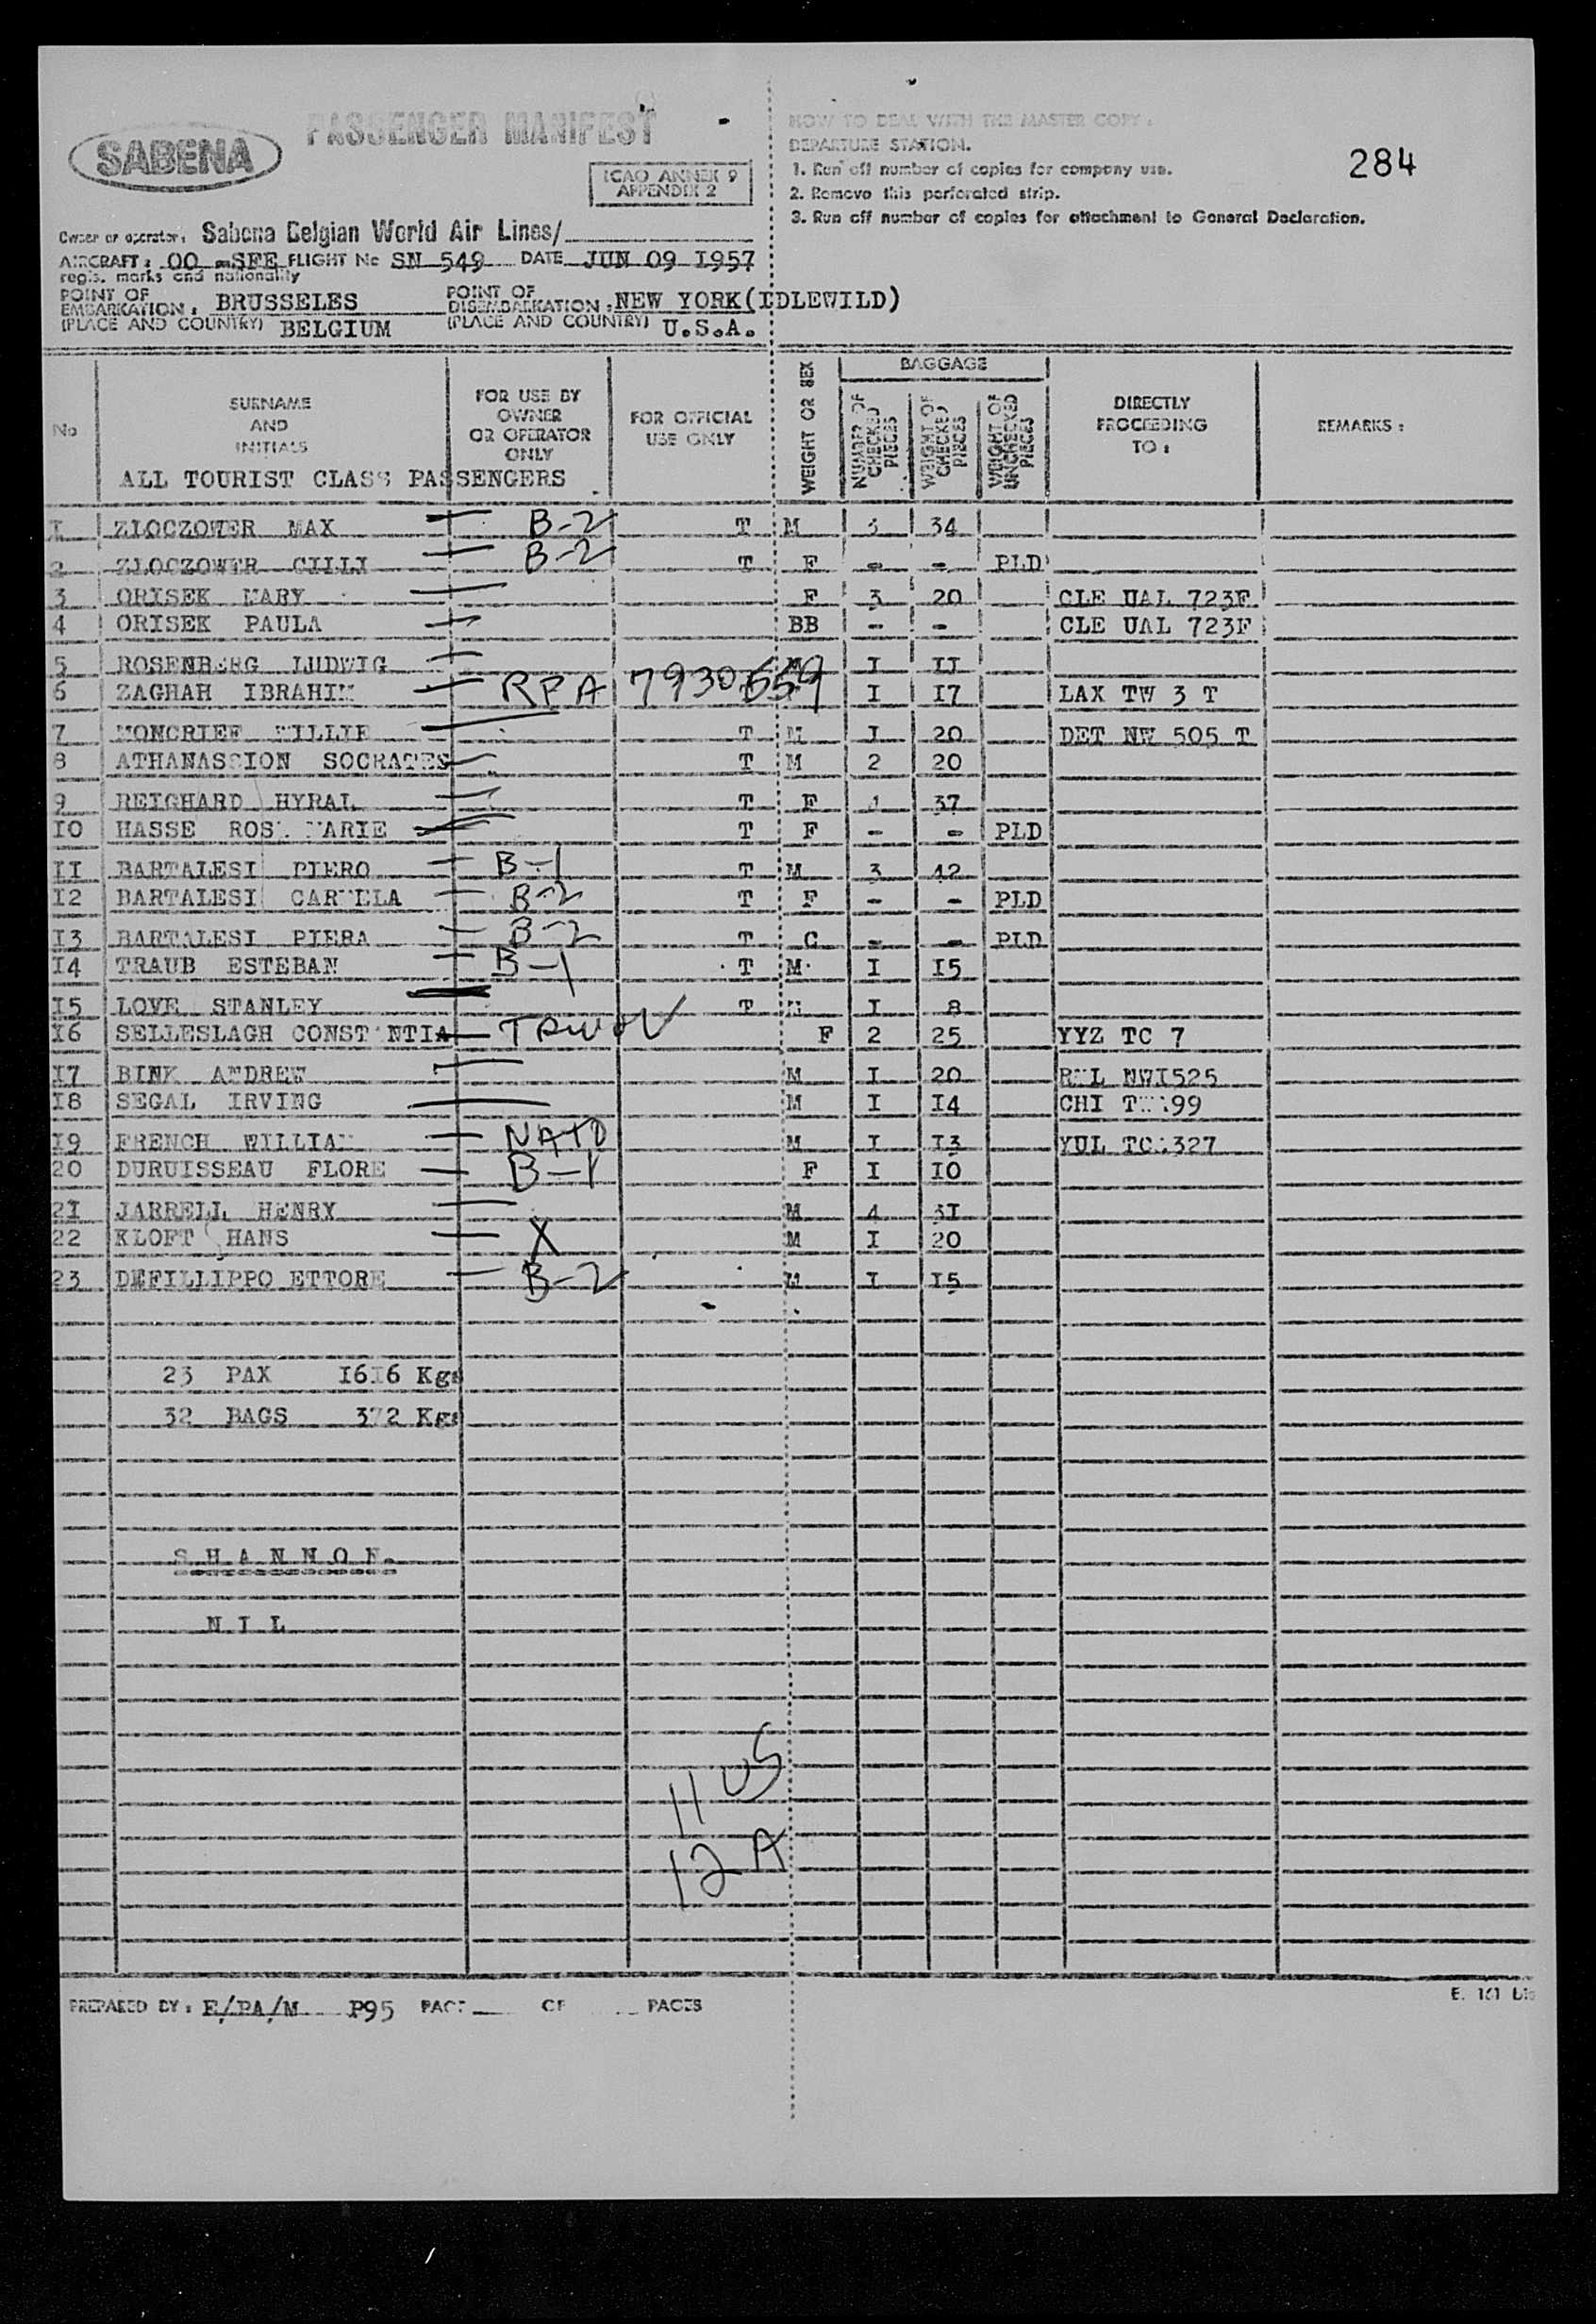 284
PASSENGER MANIFEST
SABENA
ICAO ANNEX 9
APPENDIX 2
HOW TO DEAL WITH THE MASTER COPY :
DEPARTURE STATION.
1. Run off number of copies for company use.
2. Remove this perforated strip.
3. Run off number of copies for attachment to General Declaration.
Owner or operator: Sabena Belgian World Air Lines/
AIRCRAFT : OO - SFE FLIGHT No SN 549 DATE JUN 09 1957
regis. marks and nationality
POINT OF EMBARKATION : BRUSSELES POINT OF DISEMBARKATION : NEW YORK(IDLEWILD)
(PLACE AND COUNTRY) BELGIUM (PLACE AND COUNTRY) U.S.A.
No SURNAME AND INITIALS FOR USE BY OWNER OR OPERATOR ONLY FOR OFFICIAL USE ONLY WEIGHT OR SEX BAGGAGE NUMBER OF CHECKED PIECES WEIGHT OF CHECKED PIECES WEIGHT OF UNCHECKED PIECES DIRECTLY PROCEEDING TO : REMARKS :
ALL TOURIST CLASS PASSENGERS
I ZLOCZOWER MAX B-2 T M 3 34
2 ZLOCZOWER CILLI B-2 T F - - PLD
3 ORISEK MARY F 3 20 CLE UAL 723F
4 ORISEK PAULA BB - - CLE UAL 723F
5 ROSENBERG LUDWIG M I II
6 ZAGHAH IBRAHIM RPA 7930659 I I7 LAX TW 3 T
7 MONCRIEF WILLIE T M I 20 DET NW 505 T
8 ATHANASSION SOCRATES T M 2 20
9 REIGHARD HYRAL T F 4 37
IO HASSE ROSE MARIE T F - - PLD
II BARTALESI PIERO B-1 T M 3 42
I2 BARTALESI CARMELA B-2 T F - - PLD
I3 BARTALESI PIERA B-2 T C - - PLD
I4 TRAUB ESTEBAN B-1 T M I I5
I5 LOVE STANLEY T M I 8
I6 SELLESLAGH CONSTANTIA F 2 25 YYZ TC 7
I7 BINK ANDREW M I 20 NWI525
I8 SEGAL IRVING M I I4 CHI
I9 FRENCH WILLIAM NATO M I I3 YUL
20 DURUISSEAU FLORE B-1 F I IO
2I JARRELL HENRY M 4 3I
22 KLOFT HANS X M I 20
23 DEFILLIPPO ETTORE B-2 M I I5
23 PAX I6I6 Kgs
32 BAGS 372 Kgs
SHANNON.
NIL
11 US
12 A
PREPARED BY : E/PA/M P95 PAGE OF PAGES